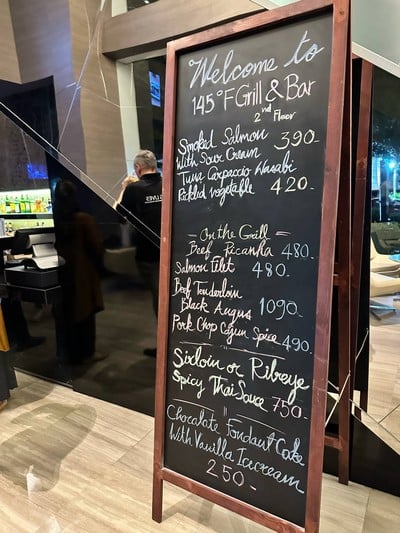 Welcome to
145°F Grill & Bar
2nd Floor
Smoked Salmon
With Sour Cream 390.-
Tuna Carpaccio Wasabi
Pickled vegetable 420.-
On the Grill
Beef Picanha 480.-
Salmon filet 480.-
Beef Tenderloin
Black Angus 1090.-
Pork Chop Cajun Spice 490.-
Sirloin or Ribeye
Spicy Thai Sauce 750.-
Chocolate Fondant Cake
With Vanilla Icecream
250.-